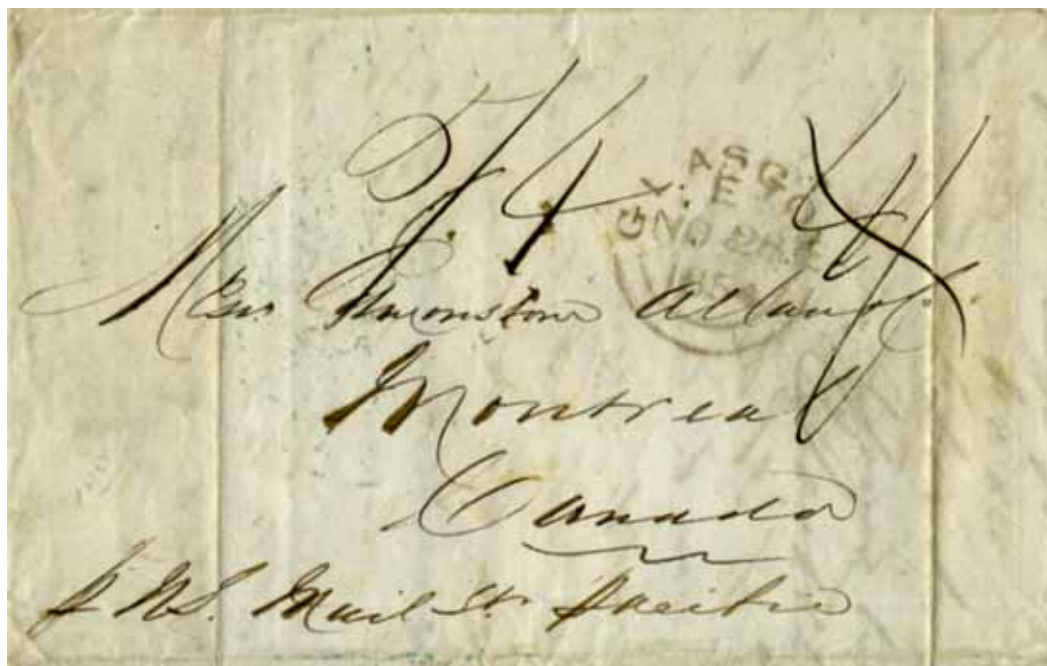 ASGO
E
NO 2
185
Messrs Edmonstone Allan & Co.
Montreal
Canada
p U.S. Mail Str. Pacific